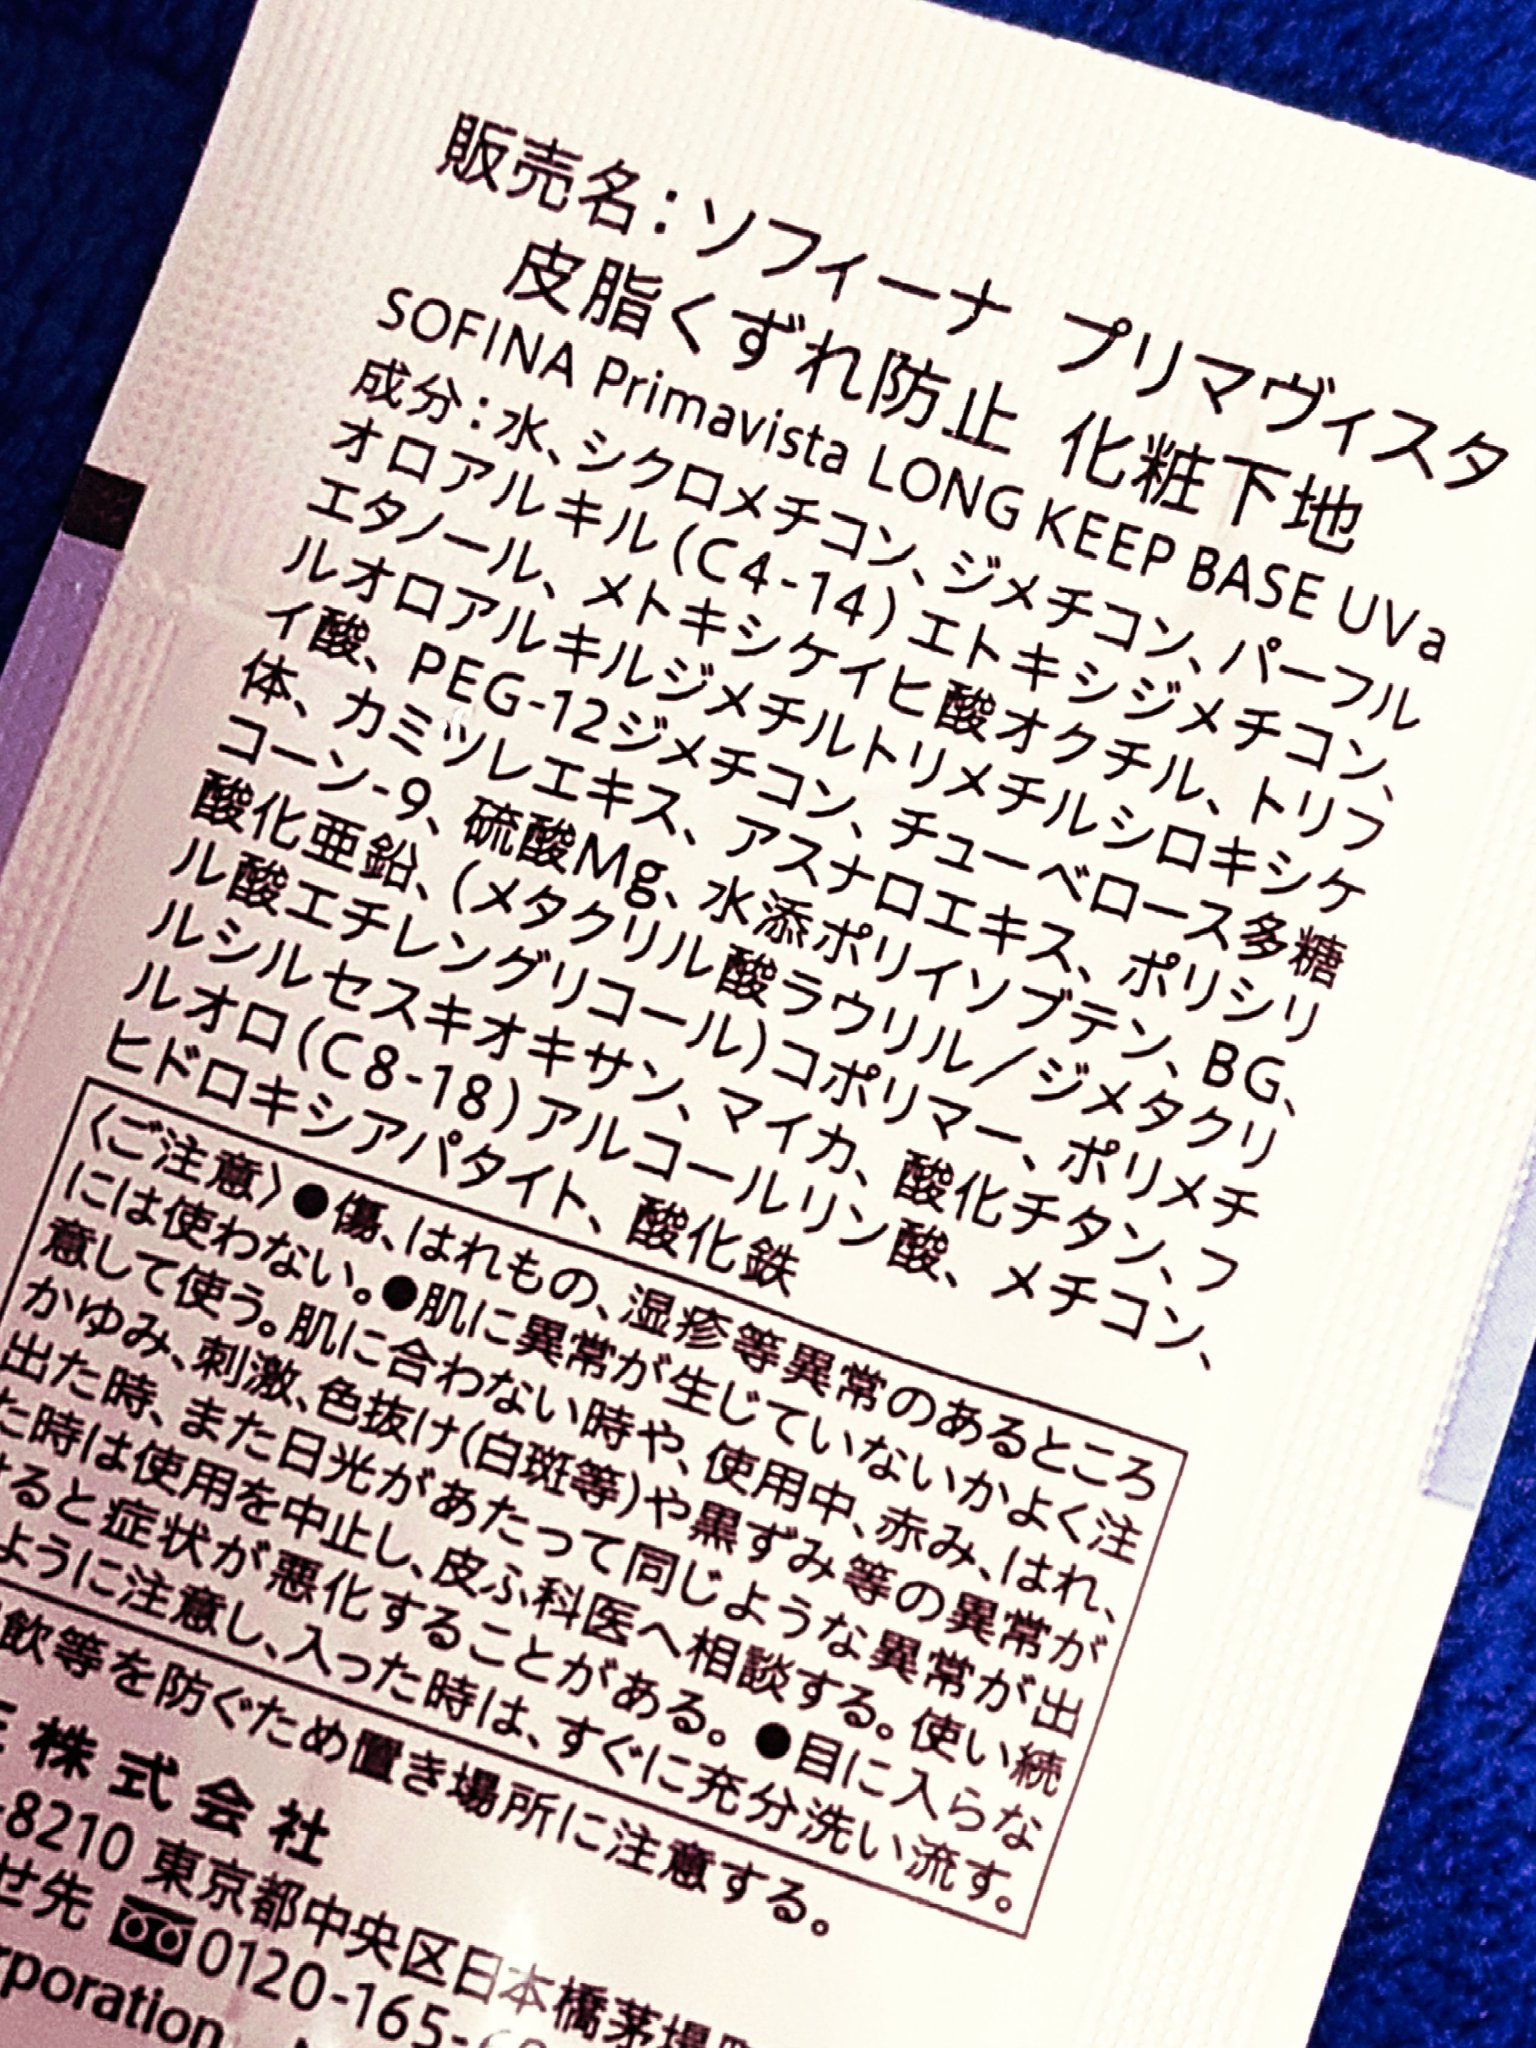 販売名：ソフィーナ プリマヴィスタ
皮脂くずれ防止 化粧下地
SOFINA Primavista LONG KEEP BASE UVa
成分：水、シクロメチコン、ジメチコン、パーフル
オロアルキル（C4-14）エトキシジメチコン、
エタノール、メトキシケイヒ酸オクチル、トリフ
ルオロアルキルジメチルトリメチルシロキシケ
イ酸、PEG-12ジメチコン、チューベロース多糖
体、カミツレエキス、アスナロエキス、ポリシリ
コーン-9、硫酸Mg、水添ポリイソブテン、BG、
酸化亜鉛、（メタクリル酸ラウリル／ジメタクリ
ル酸エチレングリコール）コポリマー、ポリメチ
ルシルセスキオキサン、マイカ、酸化チタン、フ
ルオロ（C8-18）アルコールリン酸、メチコン、
ヒドロキシアパタイト、酸化鉄
〈ご注意〉●傷、はれもの、湿疹等異常のあるところ
には使わない。●肌に異常が生じていないかよく注
意して使う。肌に合わない時や、使用中、赤み、はれ、
かゆみ、刺激、色抜け(白斑等)や黒ずみ等の異常が
出た時、また日光があたって同じような異常が出
た時は使用を中止し、皮ふ科医へ相談する。使い続
けると症状が悪化することがある。●目に入らな
ように注意し、入った時は、すぐに充分洗い流す。
飲等を防ぐため置き場所に注意する。
株式会社
-8210 東京都中央区日本橋茅場
せ先 0120-165-
rporation